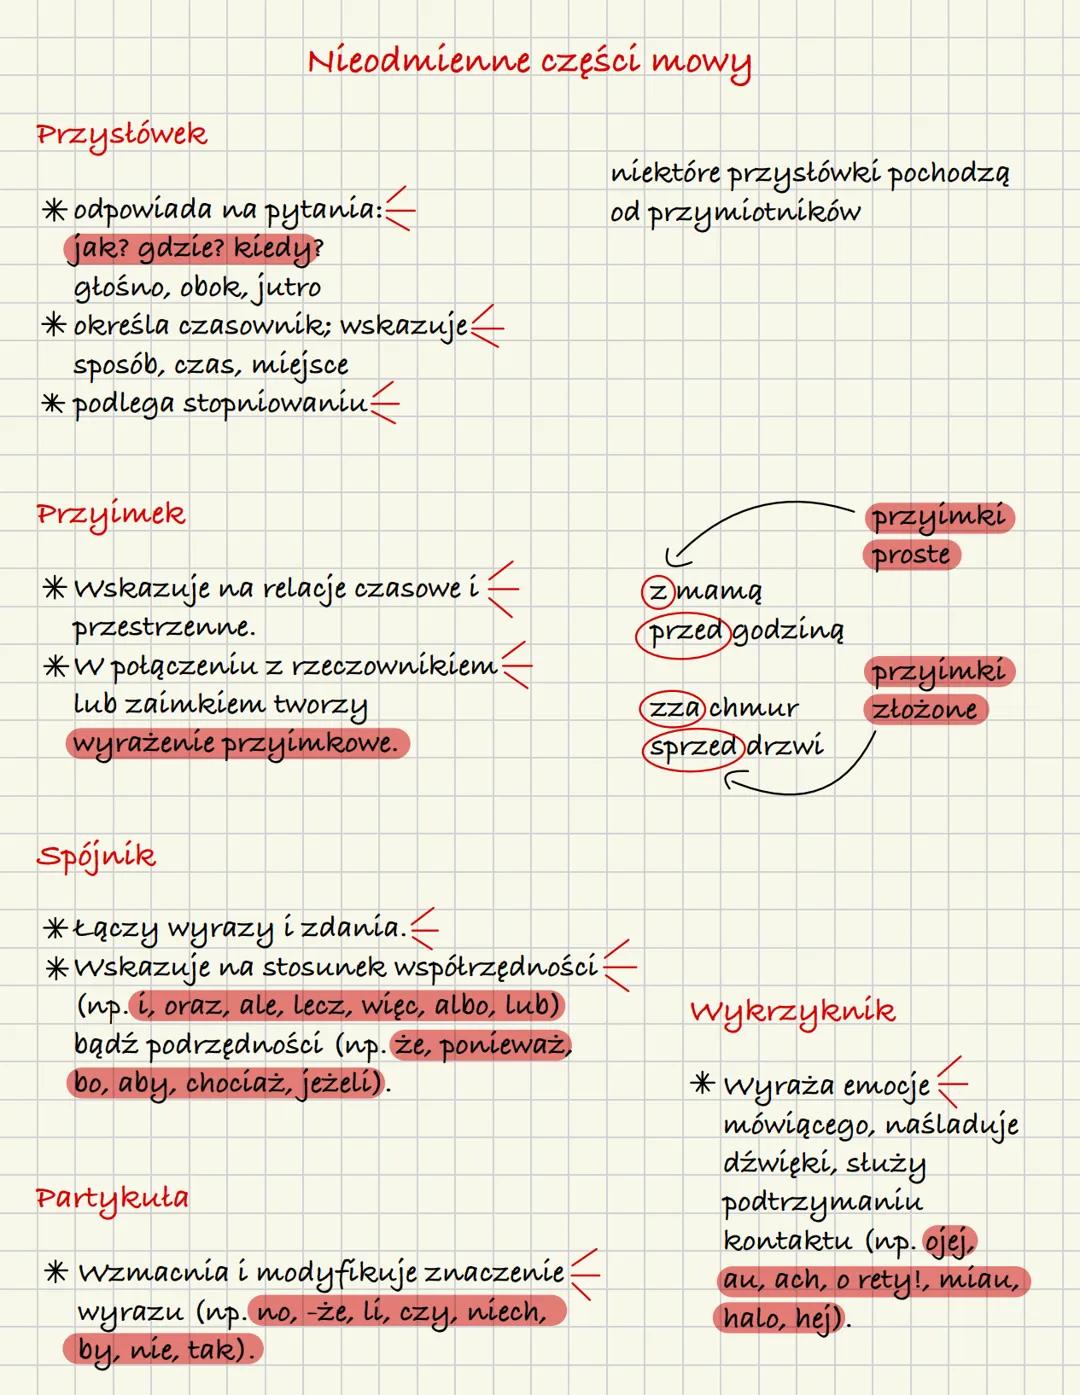 Nieodmienne części mowy
Przysłówek
* odpowiada na pytania:
jak? gdzie? kiedy?
głośno, obok, jutro
* określa czasownik; wskazuje
sposób, czas, miejsce
* podlega stopniowaniu
niektóre przysłówki pochodzą
od przymiotników
Przyimek
* Wskazuje na relacje czasowe i
przestrzenne.
* W połączeniu z rzeczownikiem
lub zaimkiem tworzy
wyrażenie przyimkowe.
przyimki
proste
z mamą
przed godziną
przyimki
złożone
zza chmur
sprzed drzwi
Spójnik
* Łączy wyrazy i zdania.
* Wskazuje na stosunek współrzędności
(np. i, oraz, ale, lecz, więc, albo, lub)
bądź podrzędności (np. że, ponieważ,
bo, aby, chociaż, jeżeli).
Partykuła
* Wzmacnia i modyfikuje znaczenie
wyrazu (np. no, -że, li, czy, niech,
by, nie, tak).
Wykrzyknik
* Wyraża emocje
mówiącego, naśladuje
dźwięki, służy
podtrzymaniu
kontaktu (np. ojej,
au, ach, o rety!, miau,
halo, hej).